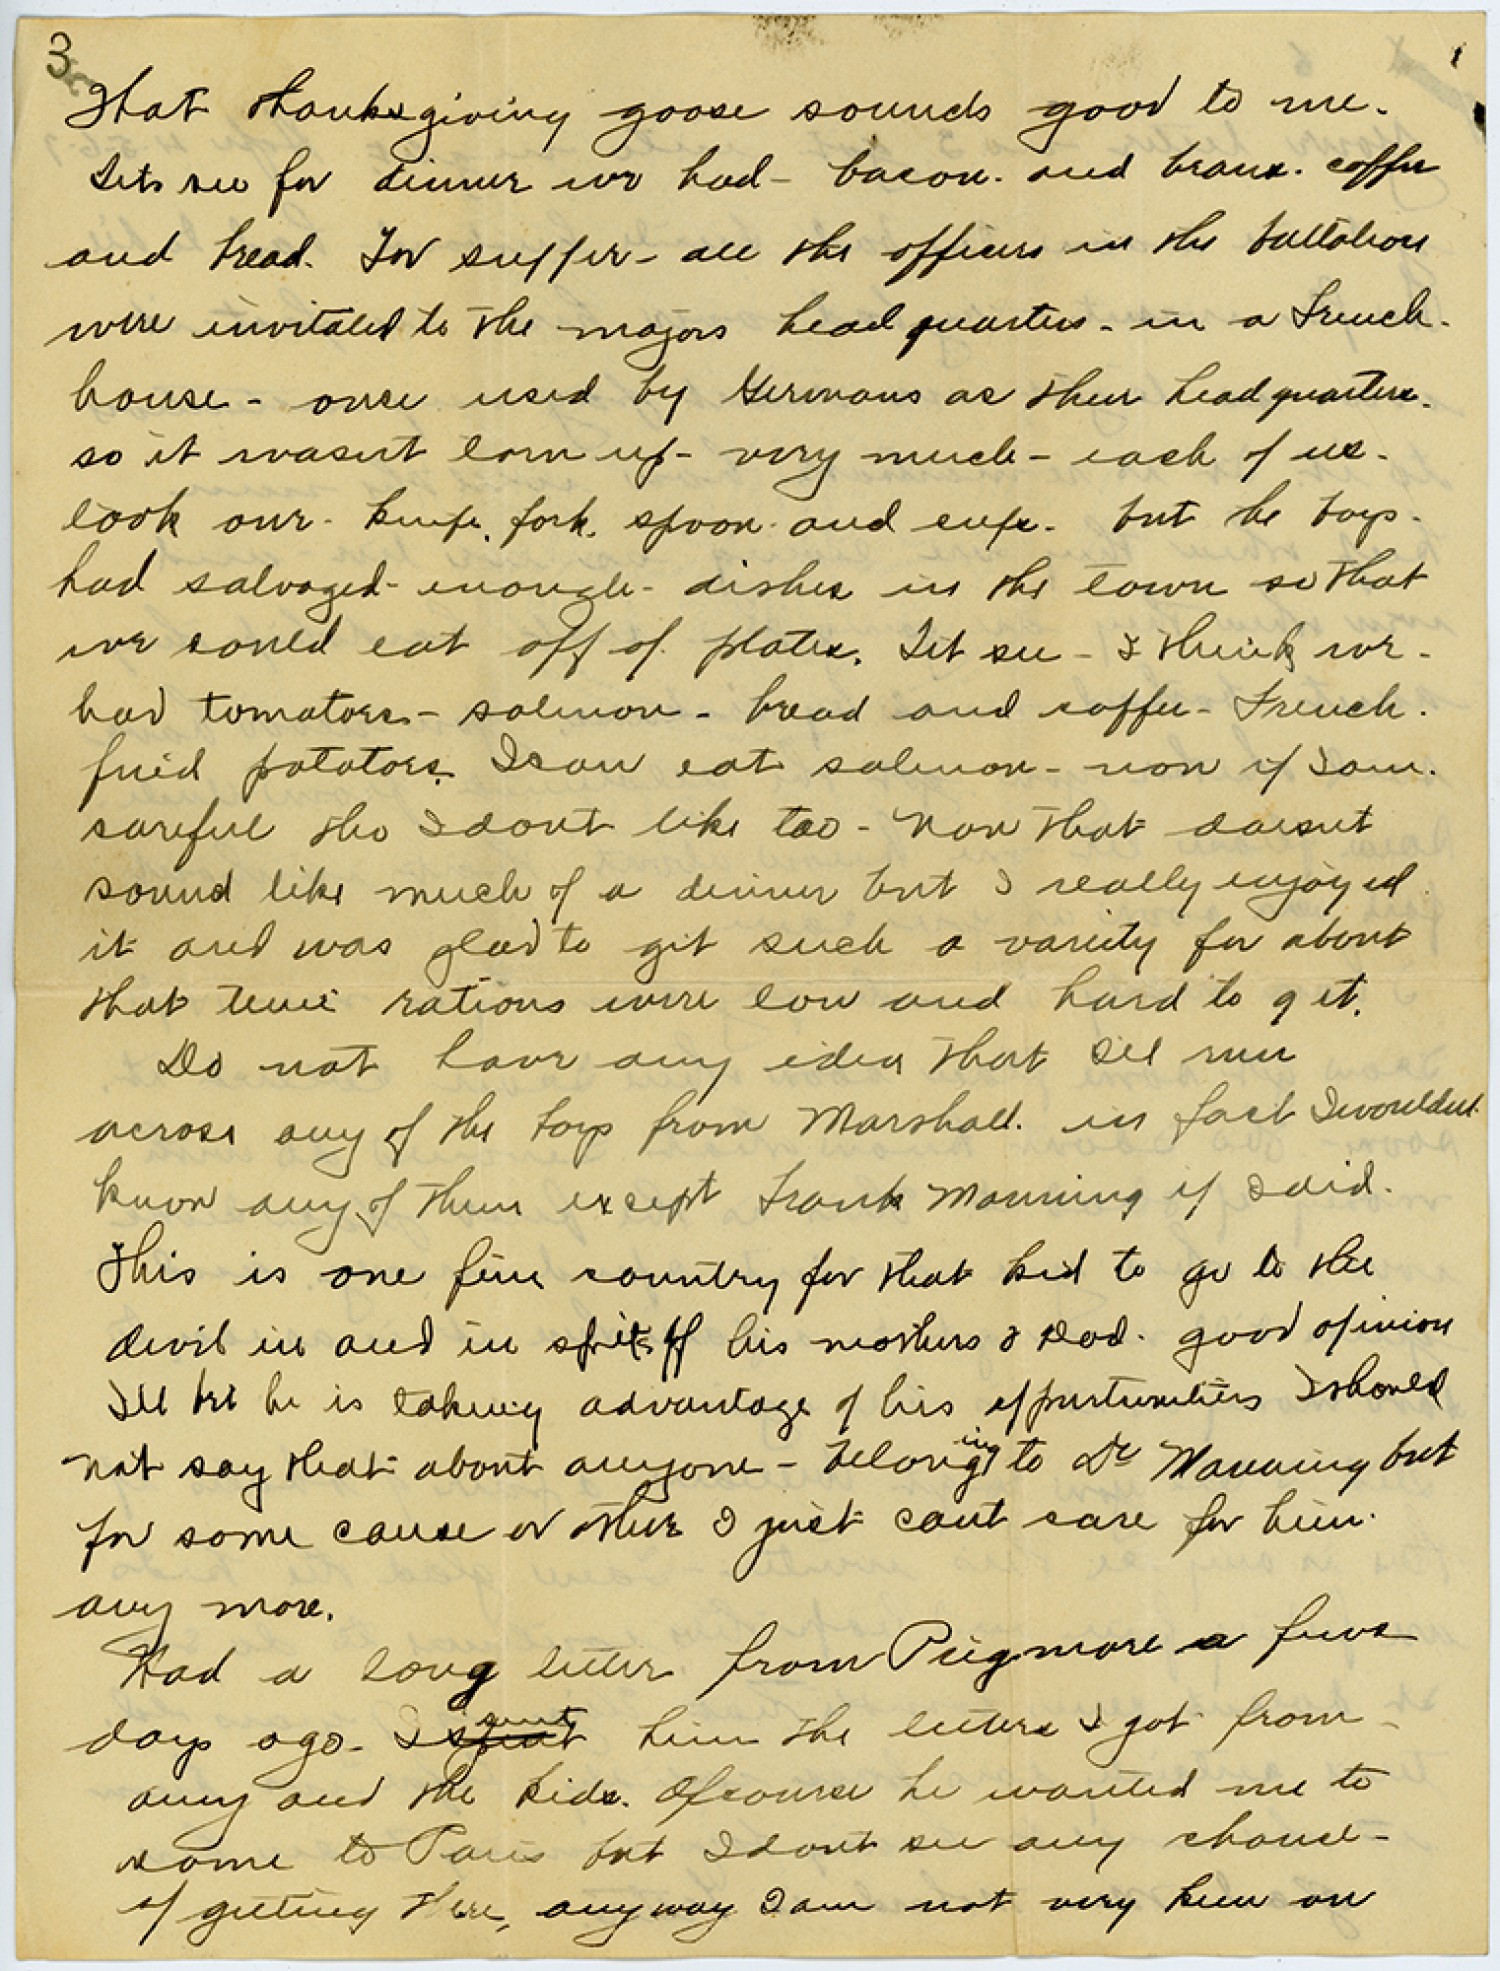 3
That Thanksgiving goose sounds good to me.
Lets see for dinner we had - bacon. and beans. coffee
and bread. For supper - all the officers in the battalion
were invitaled to the majors head quarters - in a French.
house - once used by Germans as their head quarters.
so it wasnt torn up - very much - each of us.
took our. knife, fork, spoon and cups. but the boys.
had salvaged - enough - dishes in the town so that
we could eat off of plates. Let see - I think we -
had tomatoes - salmon - bread and coffee - French.
fried potatoes. I can eat salmon - now if I am.
careful tho I dont like too - Now that doesnt
sound like much of a dinner but I really enjoyed
it and was glad to get such a variety for about
that time rations were low and hard to get.
Do not have any idea that Ill run
across any of the boys from Marshall. in fact I wouldnt
know any of them except Frank Manning if I did.
This is one fine country for that kid to go to the
devil in and in spite of his mothers & Dad. good opinion
Ill bet he is taking advantage of his opportunities I should
not say that about anyone - belonging to Dr Manning but
for some cause or other I just cant care for him.
any more.
Had a long letter from Pugmore a few
days ago - I sent him the letters I got from -
amy and the kids. Ofcourse he wanted me to
come to Paris but I dont see any chance -
of getting there, anyway I am not very keen on